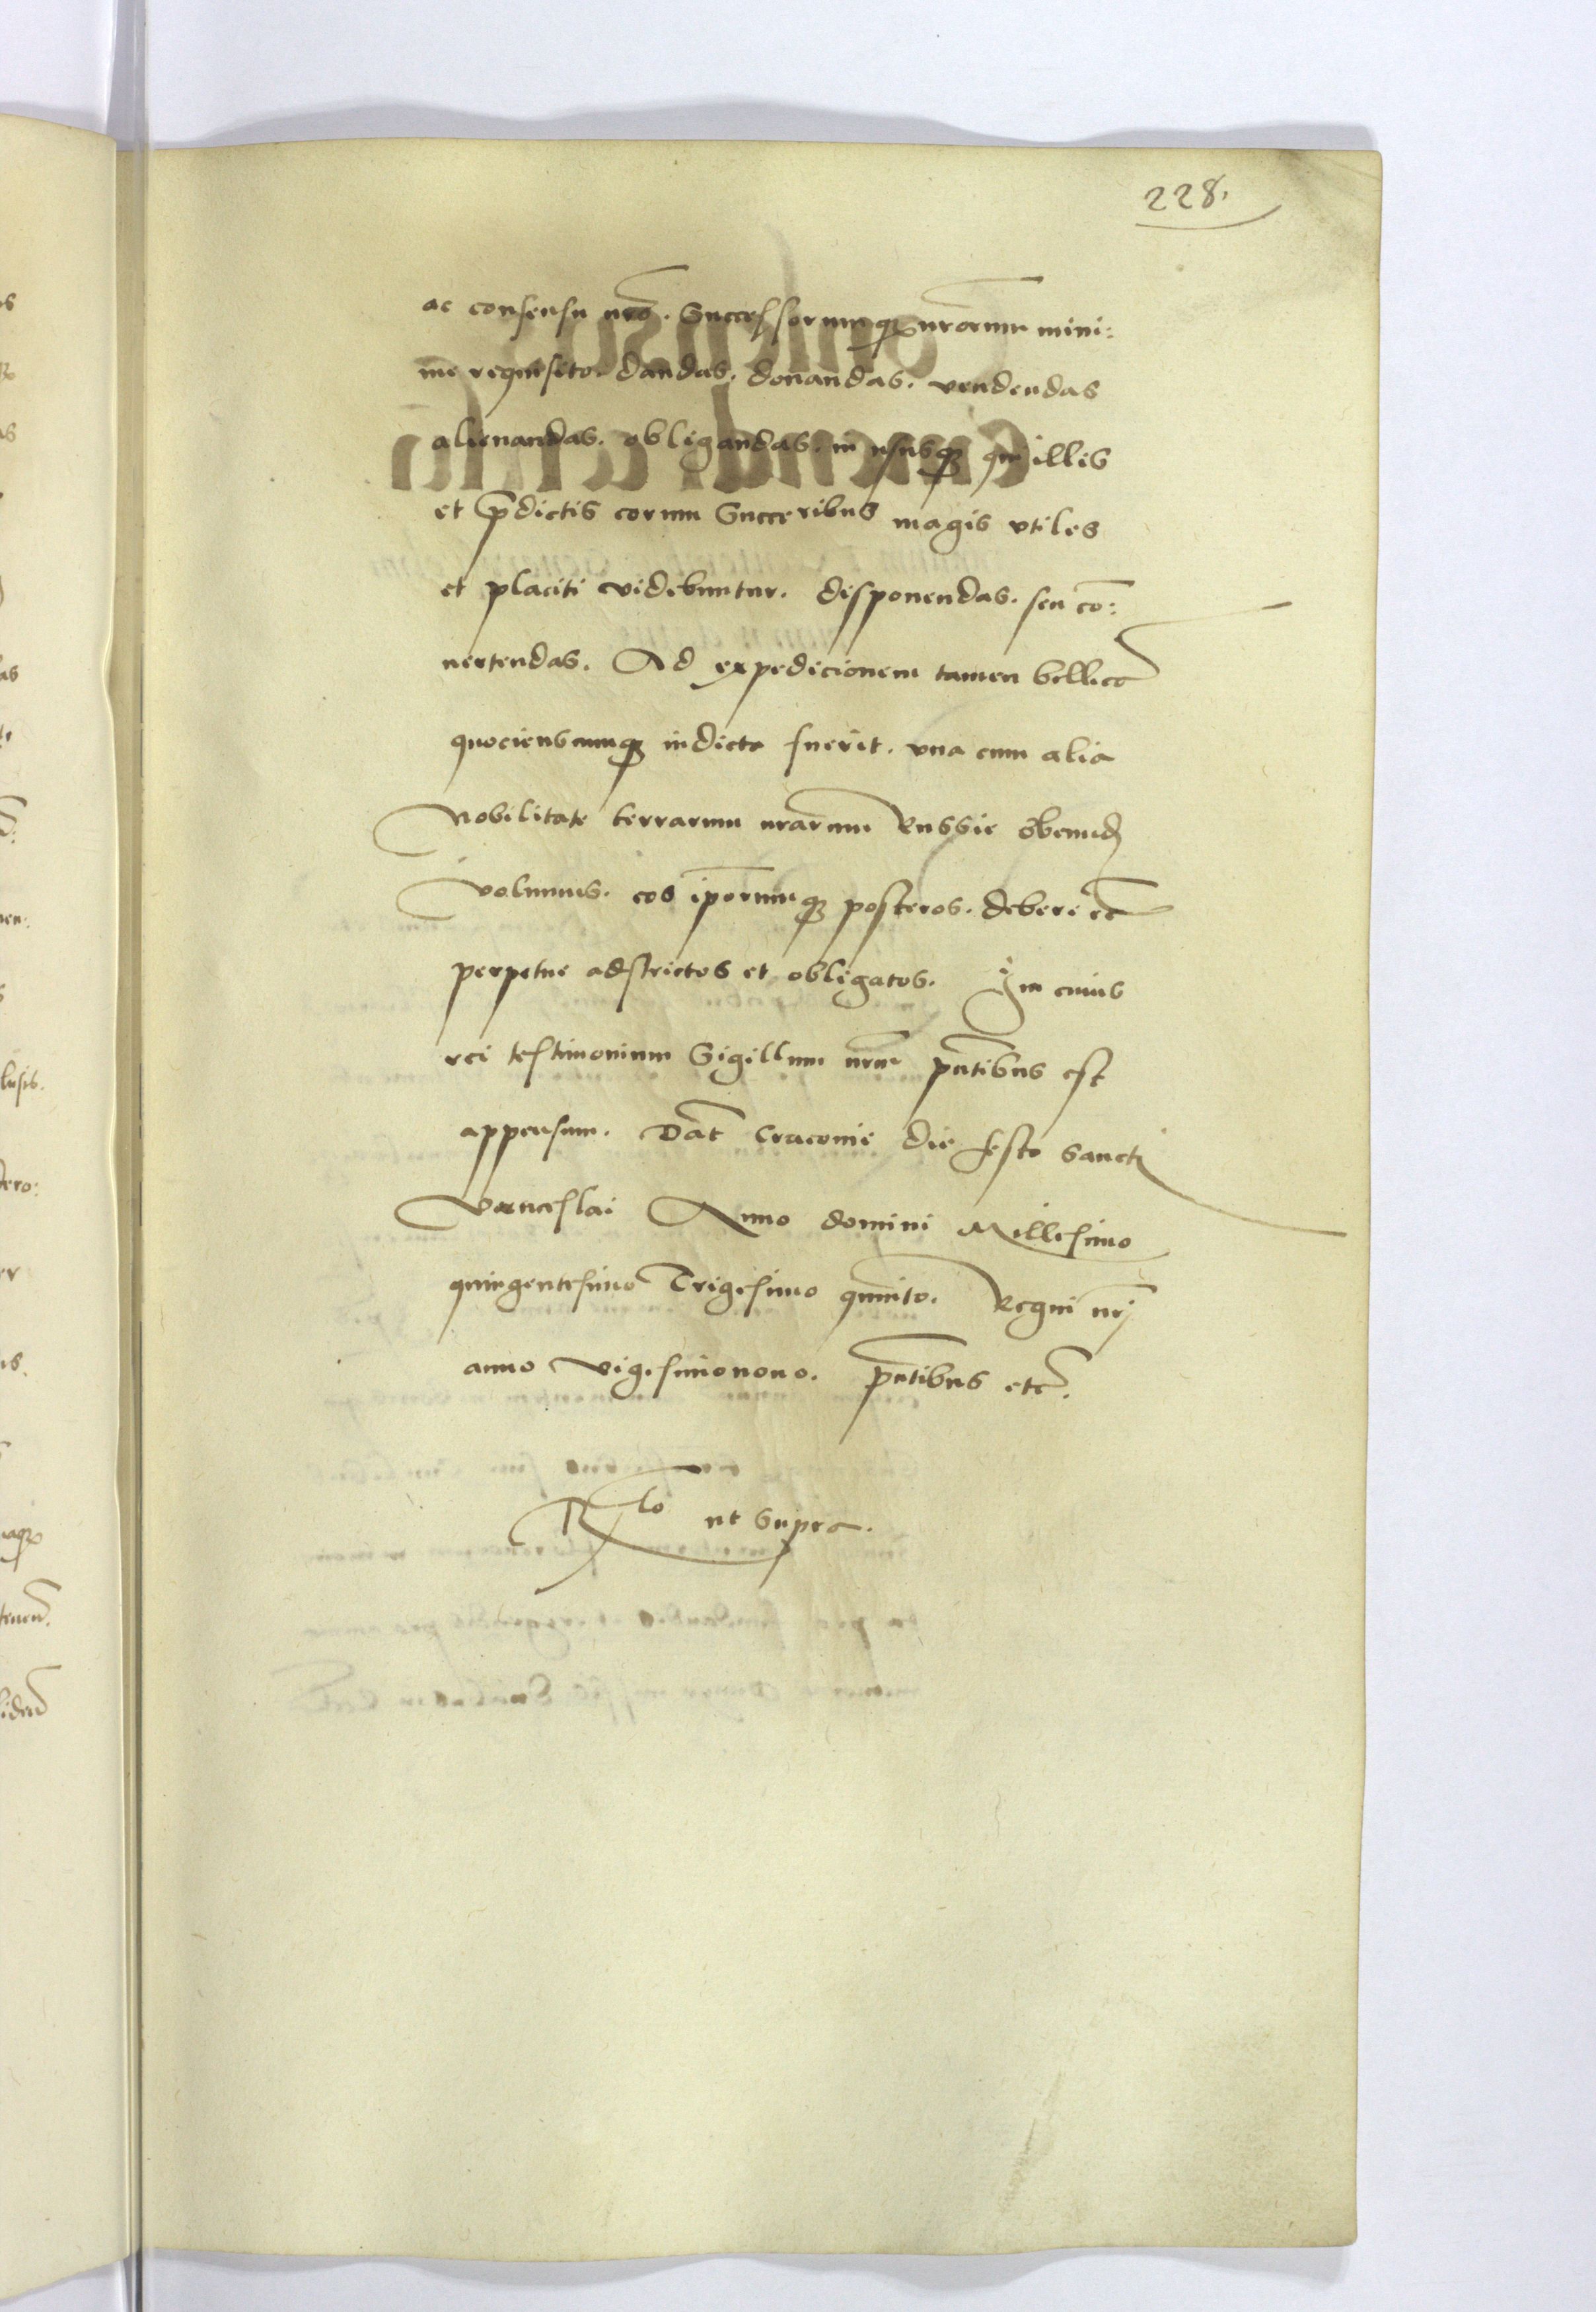 228.
ac consensu nro. Successorumqꝫ nrorum mini:
me requisito. dandas. donandas. vendendas
alienandas. obligandas. in ususqꝫ qui illis
et p̄dictis eorum Succeribus magis vtiles
et placiti videbuntur. disponendas. seu co:
nertendas. Ad expedicionem tamen bellica
quocienscumqꝫ indicta fuerit. vna cum alia
Nobilitate terrarum nrarum Russie
volumus. eos ipōrumqꝫ posteros. debere
perpetue adstrictos et obligatos. In cuius
rei testimonium Sigillum nrm p̄ntibus est
appensum. Dat Cracovie die festo Sancti
Venceslai Anno domini Millesimo
quingentesimo Trigesimo quinto. Regni nrj
anno vigesimonono. p̄ntibus etc.
Rlo ut supra.